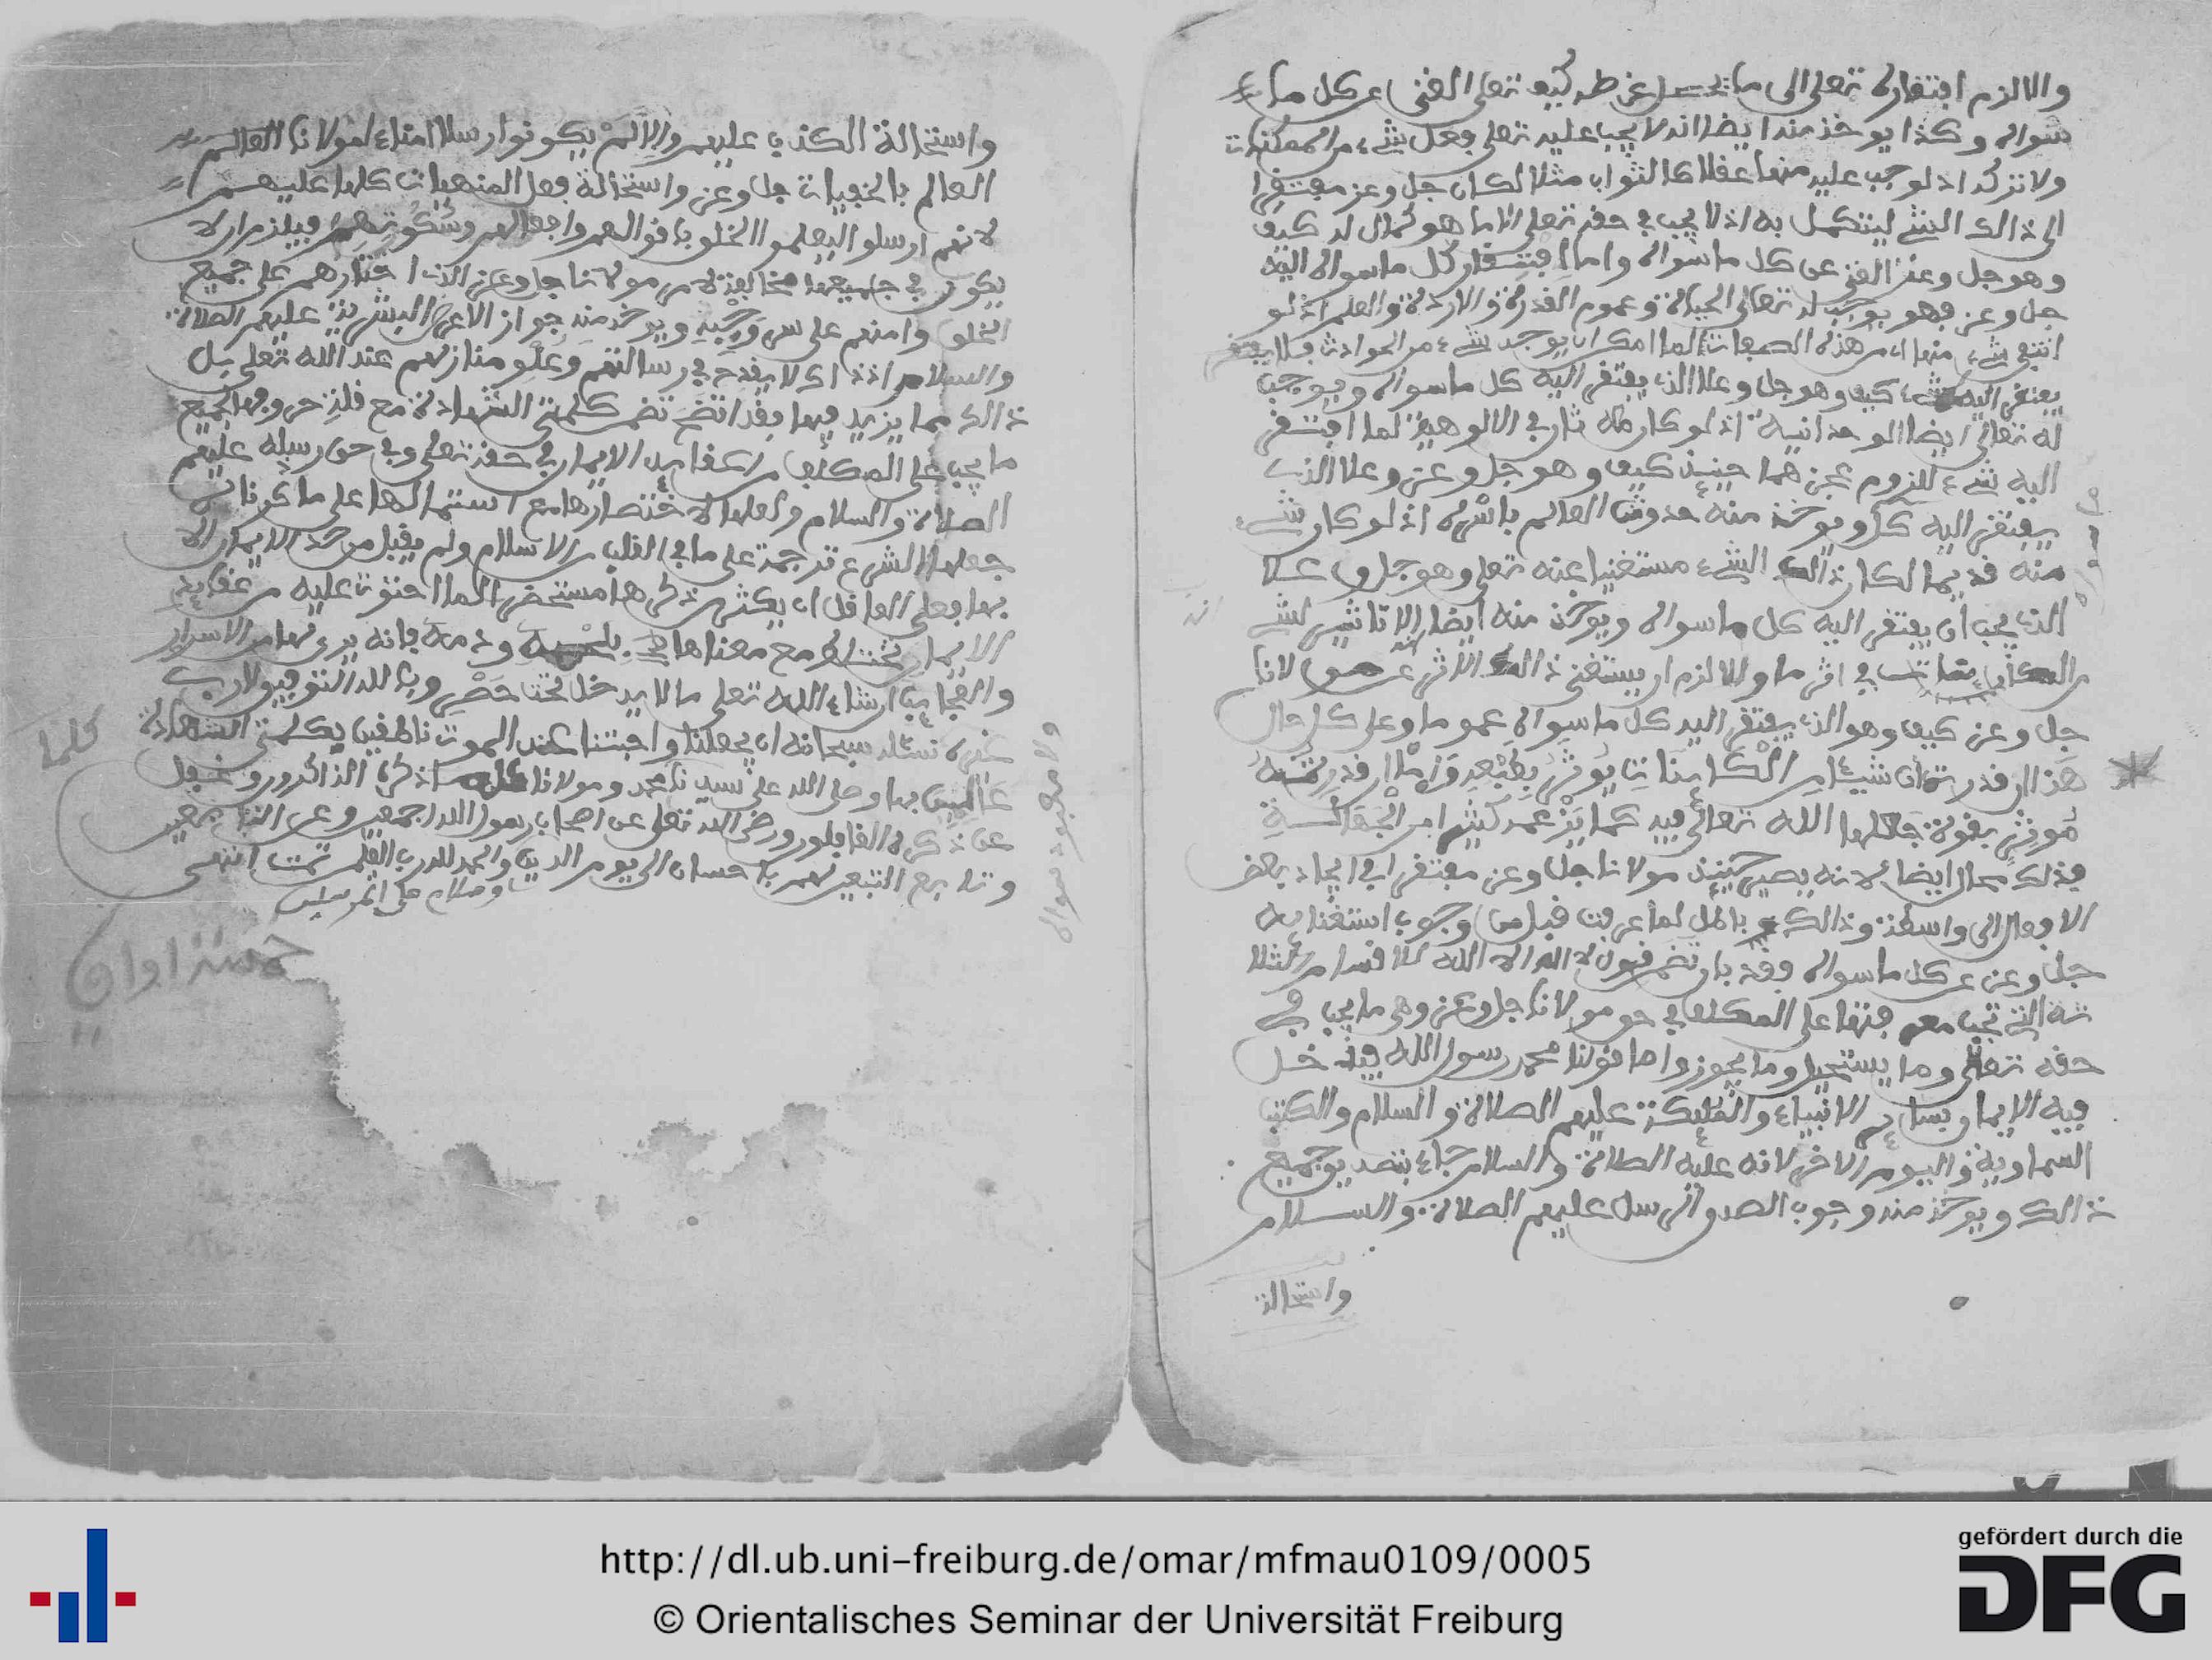 والا لزم افتقاره تعلى الى ما يحصل غرضه كيف تعلى الغنى عن كل ما
سواه وكذا يوخذ منه ايضا انه لا يجب عليه تعلى فعل شيء من الممكنات
ولا تركه اذ لو جب عليه منها عقلا كالثواب مثلا لكان جل وعز مفتقرا
الى ذالك الشيء ليتكمل به اذ لا يجب في حقه تعلى الا ما هو كمال له كيف
وهو جل وعز الغنى عن كل ما سواه واما افتقار كل ما سواه اليه
جل وعز فهو يوجب له تعالى الحياة وعموم القدرة والارادة والعلم اذ لو
انتفى شيء منها من هذه الصفات لما امكن ان يوجد شيء من الحوادث فلا يفتقر
يفتقر اليه شيء كيف وهو جل وعلا الذي يفتقر اليه كل ما سواه ويوجب
له تعالى ايضا الوحدانية اذ لو كان معه ثان في الالوهية لما افتقر
اليه شيء للزوم عجزهما حينئذ كيف وهو جل وعز وعلا الذي
يفتقر اليه كل ويوخذ منه حدوث العالم باسره اذ لو كان شيء
منه قديما لكان ذالك الشيء مستغنيا عنه تعلى وهو جل وعلا
الذي يجب ان يفتقر اليه كل ما سواه ويوخذ منه ايضا الا تاثير لشيء
من الكائنات في اثر ما والا لزم ان يستغنى ذالك الاثر عن مولانا
جل وعز كيف وهو الذي يفتقر اليه كل ما سواه عموما وعلى كل حال
هذا ان قدرت ان شيئا من الكائنات يوثر بطبعه واما ان قدرته
موثرا بقوة جعلها الله تعالى فيه كما يزعمه كثير من الجهلة
فذلك محال ايضا لانه يصير حينئذ مولانا جل وعز مفتقرا في ايجاد بعض
الافعال الى واسطة وذالك باطل لما عرفت قبل من وجوب استغنائه
جل وعز عن كل ما سواه فقد بان تضمن قول لا اله الا الله للاقسام الثلا
ثة التي تجب معرفتها على المكلف في حق مولانا جل وعز وهي ما يجب في
حقه تعلى وما يستحيل وما يجوز واما قولنا محمد رسول الله فيدخل
فيه الايمان بسائر الانبياء والملئكة عليهم الصلاة والسلام والكتب
السماوية واليوم الاخر لانه عليه الصلاة والسلام جاء بتصديق جميع
ذالك ويوخذ منه وجوب الصدق الرسل عليهم الصلاة والسلام
واستحالة
واستحالة الكذب عليهم والا لم يكونوا رسلا امناء لمولانا العالم
العالم بالخفيات جل وعز واستحالة فعل المنهيات كلها عليهم
لانهم ارسلوا ليعلموا الخلق باقوالهم وافعالهم وسكوتهم فيلزم ان لا
يكون في جميعها مخالفة لامر مولانا جل وعز الذي اختارهم على جميع
الخلق وامنهم على سر وحيه ويوخذ منه جواز الاعراض البشرية عليهم الصلاة
والسلام اذ ذاك لا يقدح في رسالتهم وعلو منازلهم عند الله تعلى بل
ذالك مما يزيد فيها فقد اتضح تضمن كلمتي الشهادة مع قلة حروفها لجميع
ما يجب على المكلف من عقائد الايمان في حقه تعلى وفي حق رسله عليهم
الصلاة والسلام ولعلها لاختصارها مع اشتمالها على ما ذكرناه
جعلها الشرع ترجمة على ما في القلب من الاسلام ولم يقبل من احد الايمان الا
بها فعلى العاقل ان يكثر من ذكرها مستحضرا لما احتوت عليه من عقائد
الايمان حتى تمتزج مع معناها بلحمه ودمه فانه يرى لها من الاسرار
والعجائب ان شاء الله تعلى ما لا يدخل تحت حصر وبالله التوفيق لا رب
غيره نسئله سبحانه ان يجعلنا واحبتنا عند الموت ناطقين بكلمتي الشهادة
عالمين بها وصلى الله على سيدنا محمد ومولانا كلما ذكره الذاكرون وغفل
عن ذكره الغافلون ورضي الله تعلى عن اصحاب رسول الله اجمعين وعن التابعين
وتابع التبعين لهم باحسان الى يوم الدين والحمد لله رب العلمين تمت انتهى
وسلام على المرسلين
كلما
ولا معبود سواه